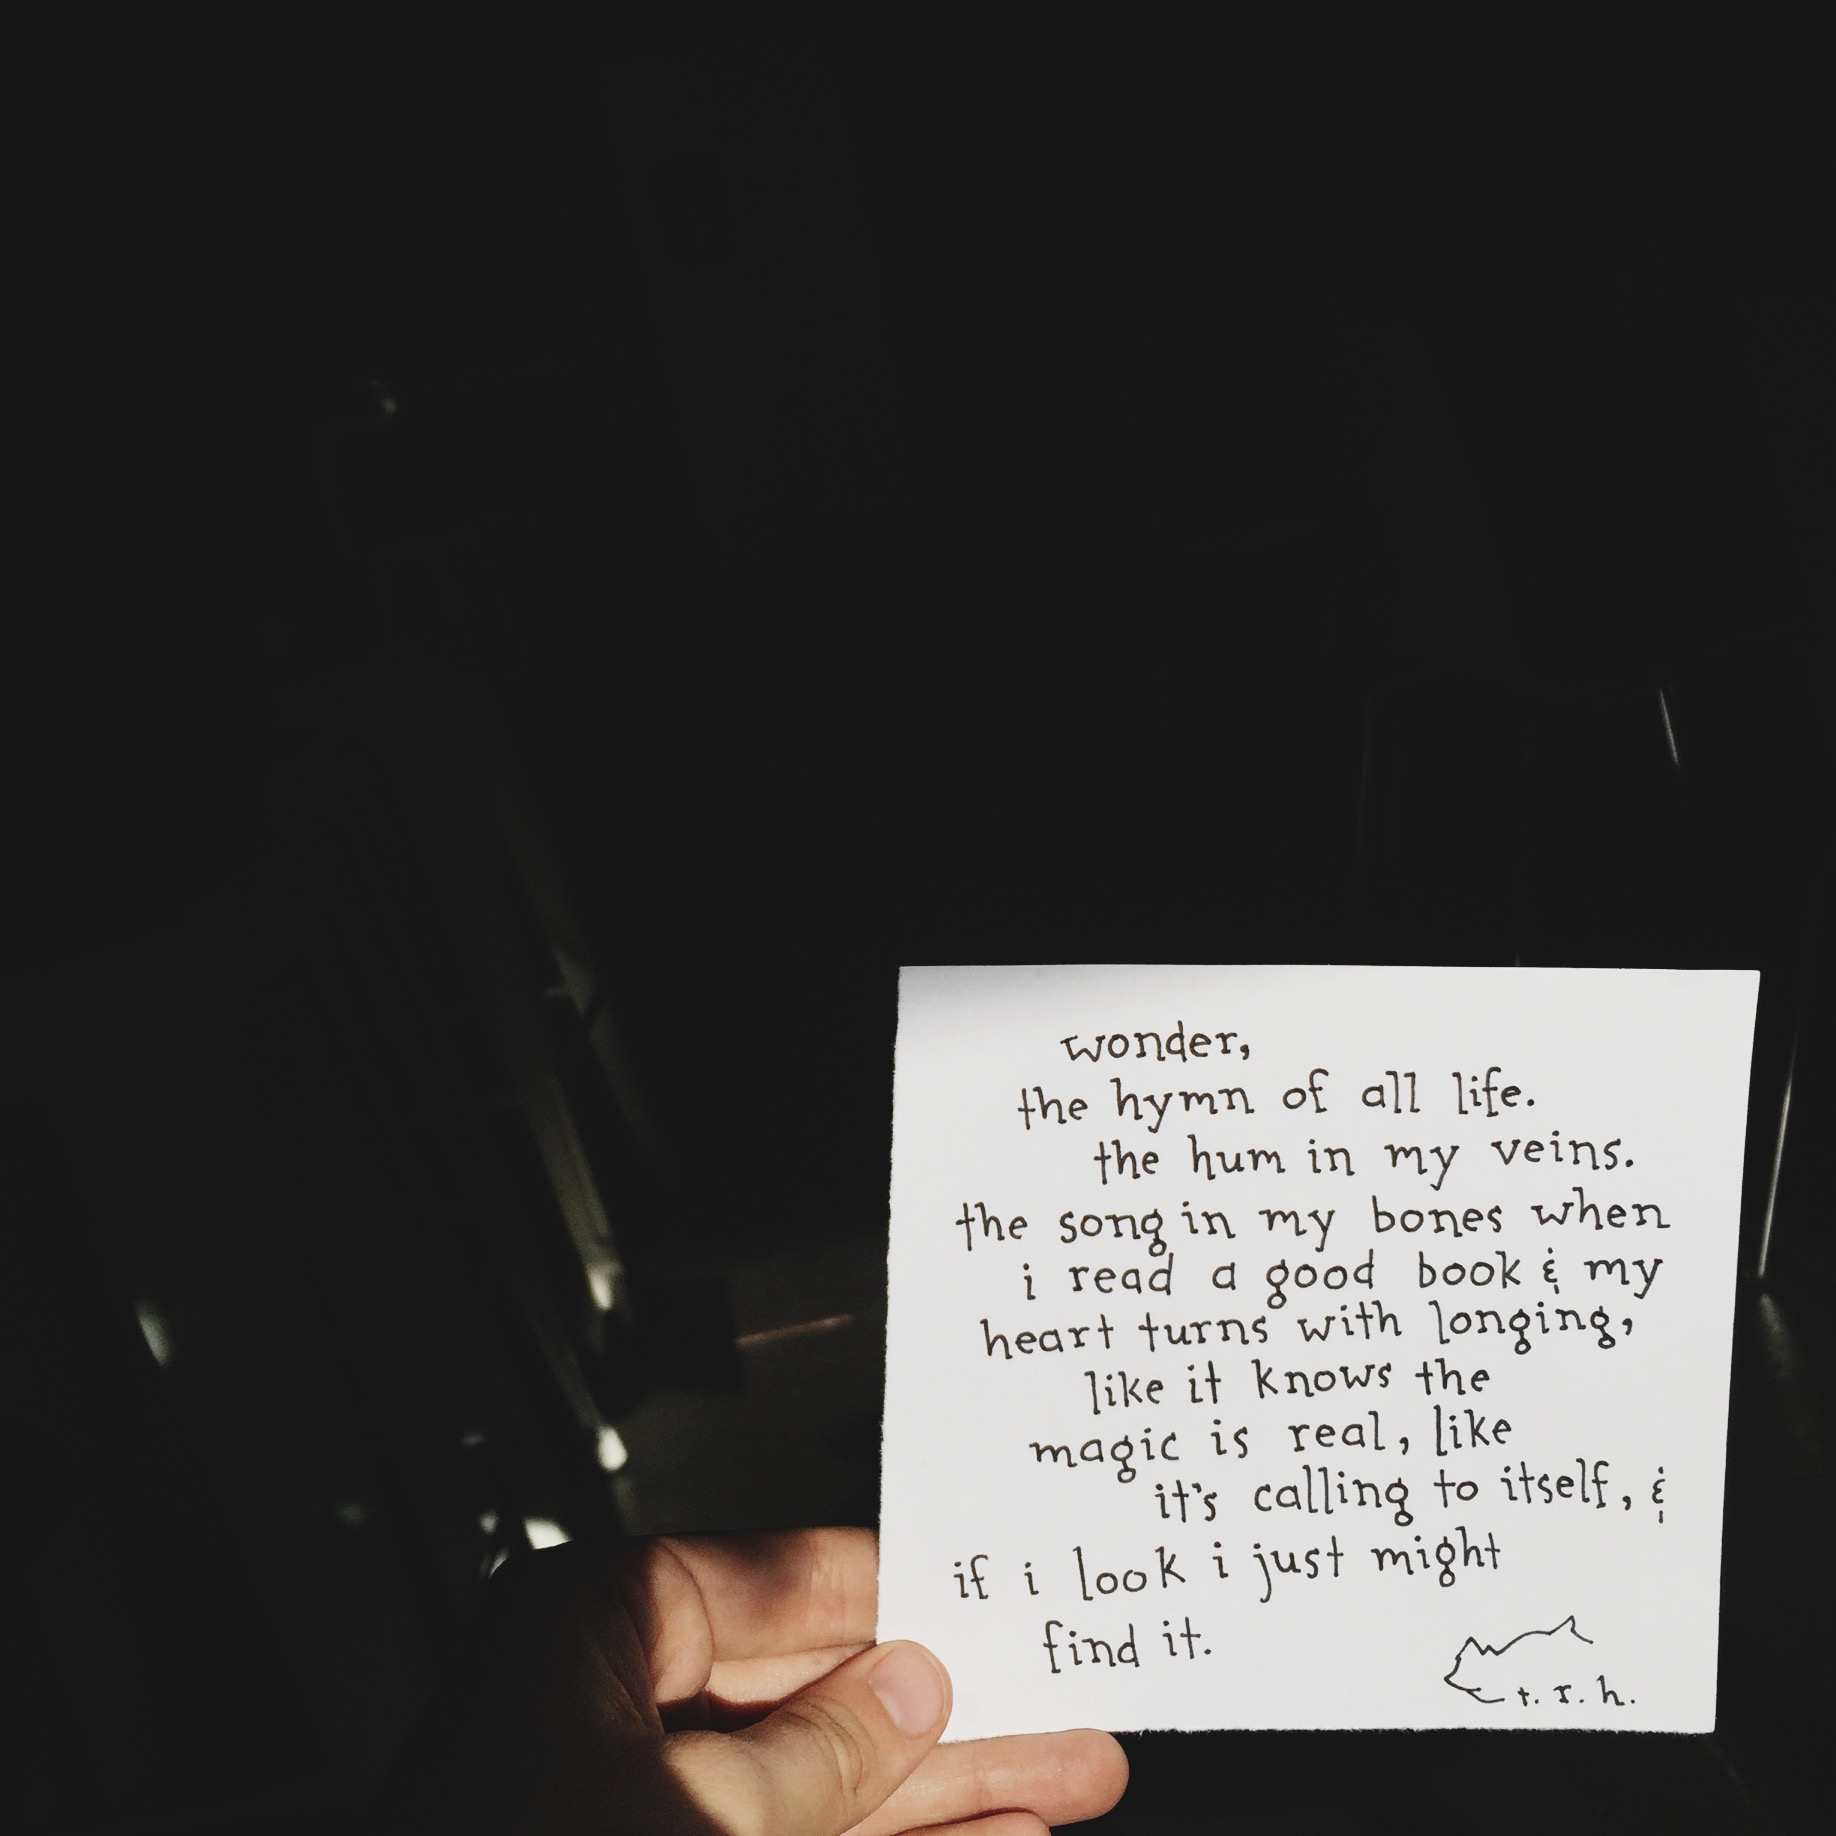 wonder,
the hymn of all life.
the hum in my veins.
the song in my bones when
i read a good book & my
heart turns with longing,
like it knows the
magic is real, like
it's calling to itself, &
if i look i just might
find it.
t. r. h.